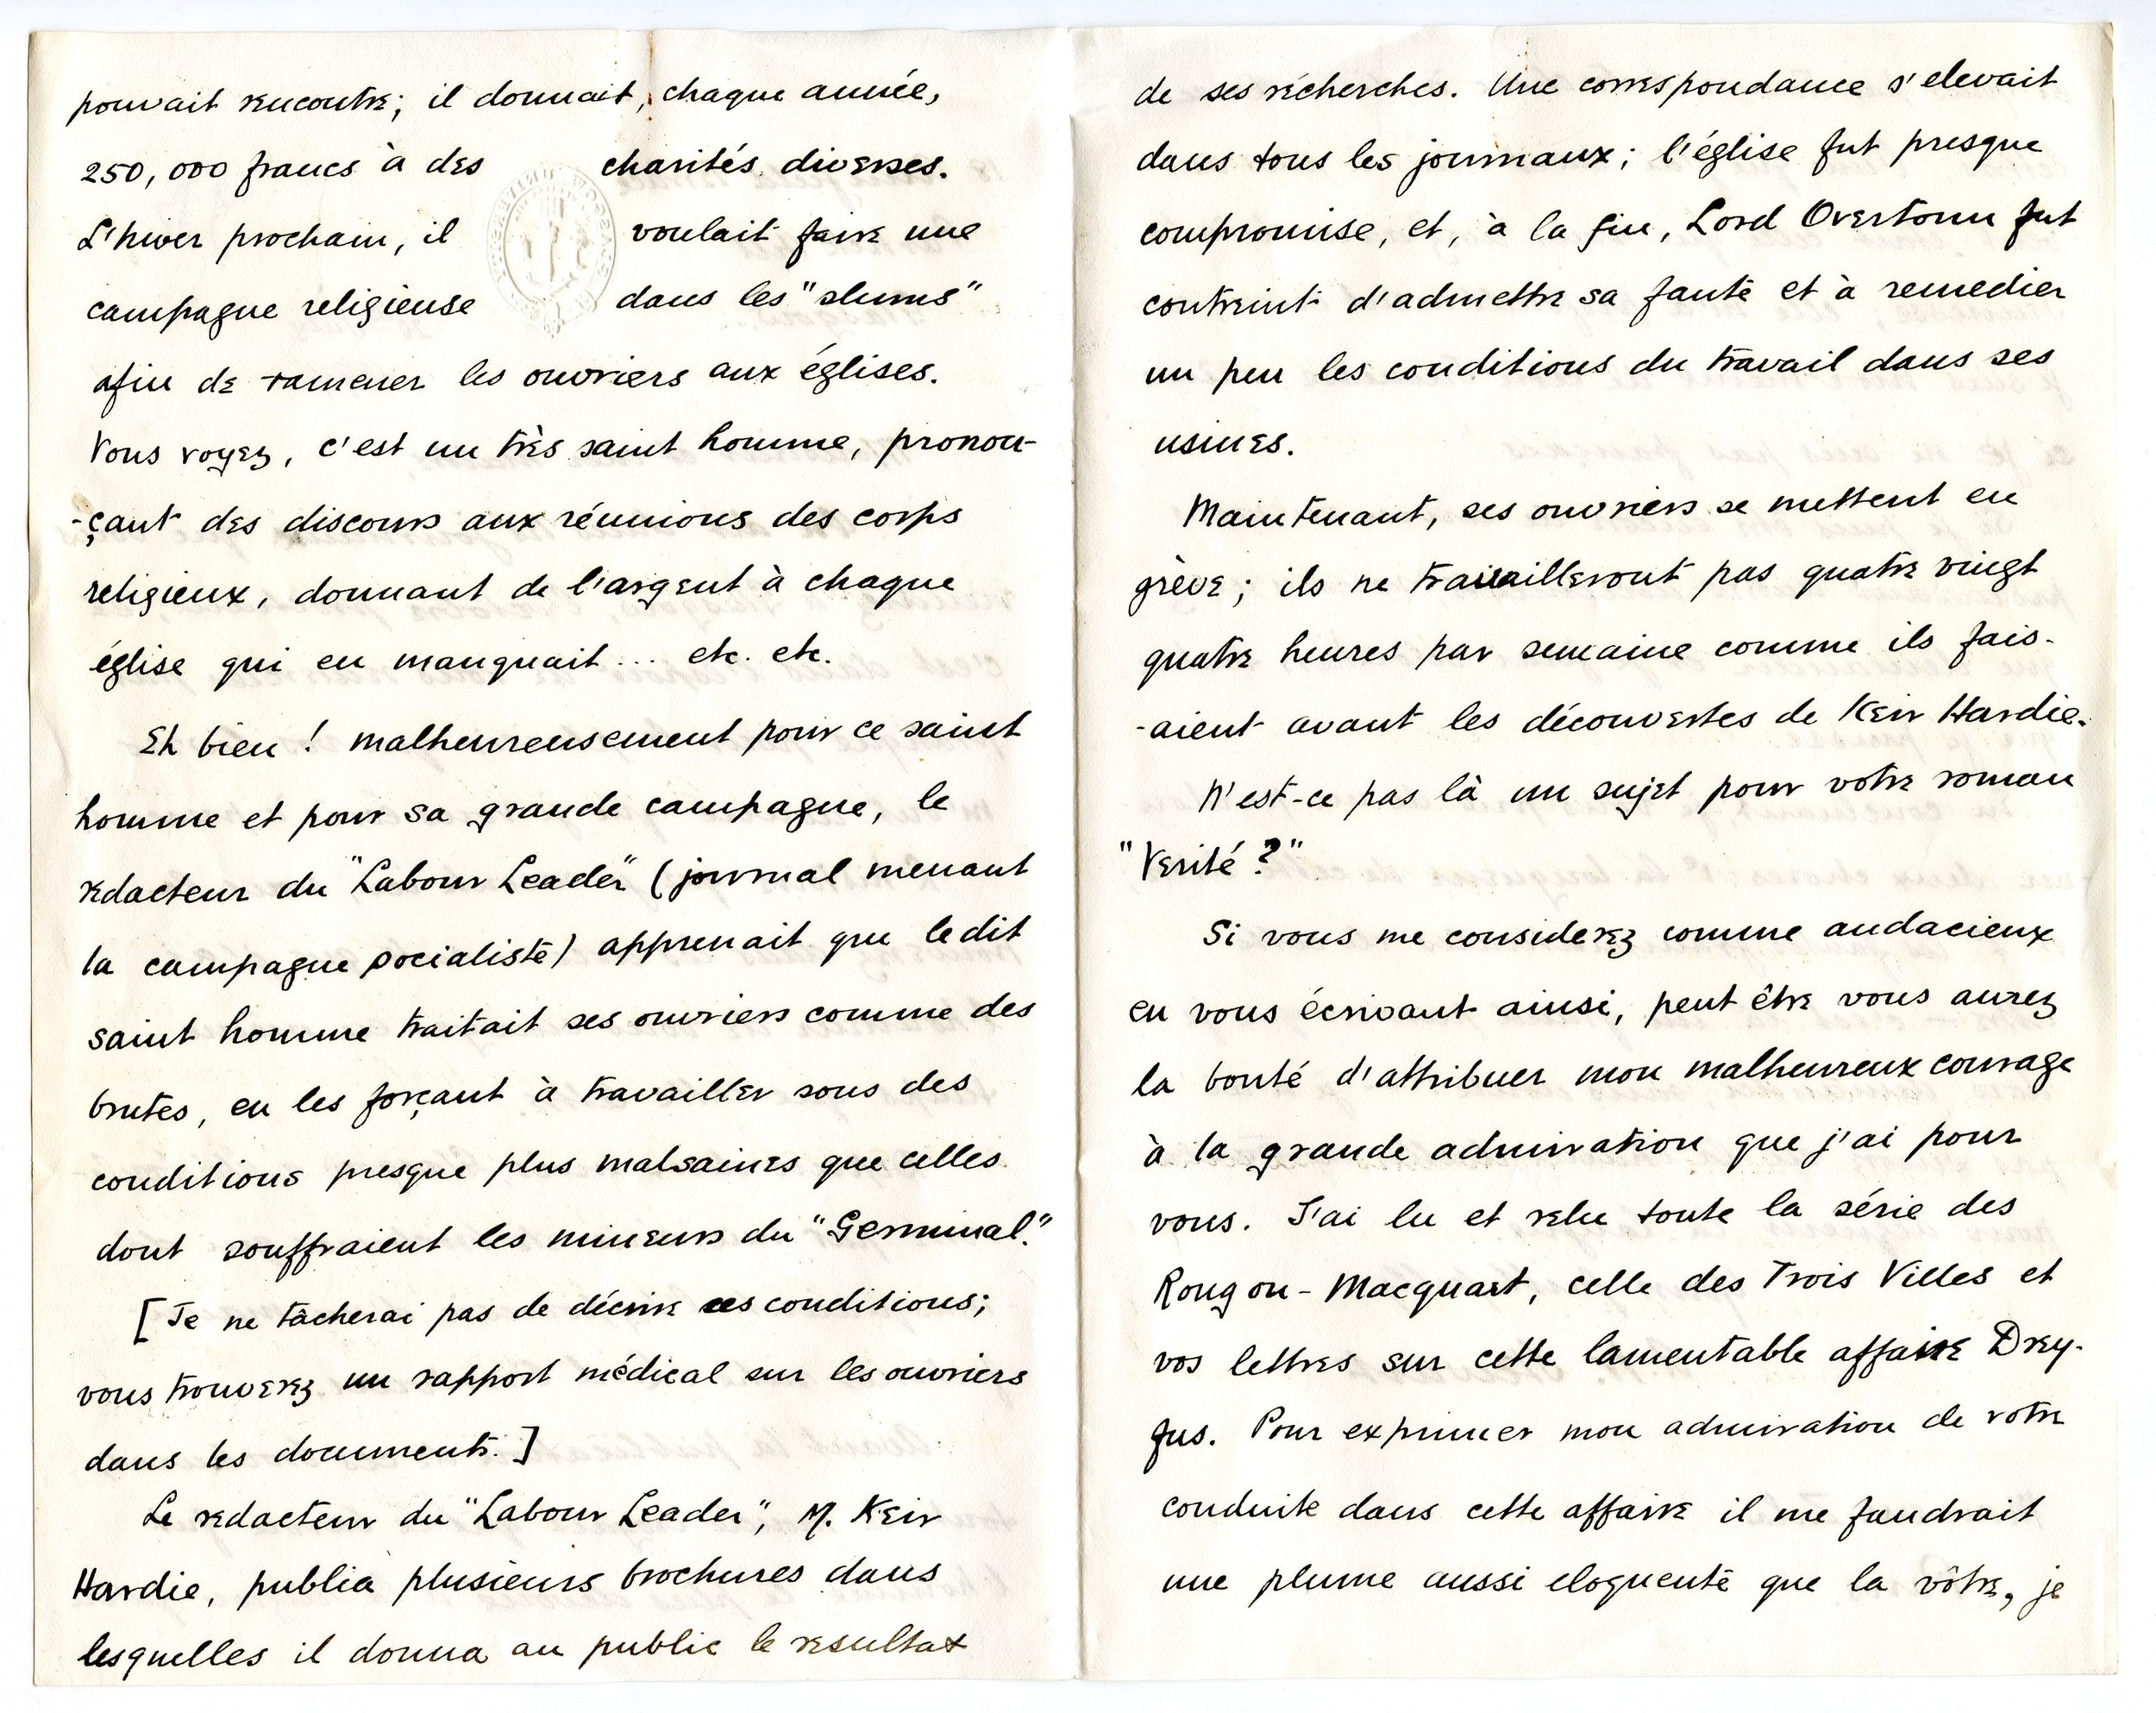 pouvait rencontre; il donnait, chaque année,
250,000 francs à des charités diverses.
L'hiver prochain, il voulait faire une
campagne religieuse dans les "slums"
afin de ramener les ouvriers aux églises.
Vous voyez, c'est un très saint homme, pronon-
-çant des discours aux réunions des corps
religieux, donnant de l'argent à chaque
église qui en manquait... etc. etc.
Eh bien! malheureusement pour ce saint
homme et pour sa grande campagne, le
redacteur du "Labour Leader" (journal menant
la campagne socialiste) apprenait que le dit
saint homme traitait ses ouvriers comme des
brutes, en les forçant à travailler sous des
conditions presque plus malsaines que celles
dont souffraient les mineurs du "Germinal."
[Je ne tâcherai pas de décrire ces conditions;
vous trouverez un rapport médical sur les ouvriers
dans les documents.]
Le redacteur du "Labour Leader", M. Keir
Hardie, publia plusieurs brochures dans
lesquelles il donna au public le resultat
de ses récherches. Une correspondance s'elevait
dans tous les journaux; l'église fut presque
compromise, et, à la fin, Lord Overtoun fut
contreint d'admettre sa faute et à remedier
un peu les conditions du travail dans ses
usines.
Maintenant, ses ouvriers se mettent en
grève; ils ne travailleront pas quatre vingt
quatre heures par semaine comme ils fais-
-aient avant les découvertes de Keir Hardie.
N'est-ce pas là un sujet pour votre roman
"Verité?"
Si vous me considerez comme audacieux
en vous écrivant ainsi, peut être vous aurez
la bonté d'attribuer mon malheureux courage
à la grande admiration que j'ai pour
vous. J'ai lu et relu toute la série des
Rougon-Macquart, celle des Trois Villes et
vos lettres sur cette lamentable affaire Drey-
fus. Pour exprimer mon admiration de votre
conduite dans cette affaire il me faudrait
une plume aussi eloquente que la vôtre, je